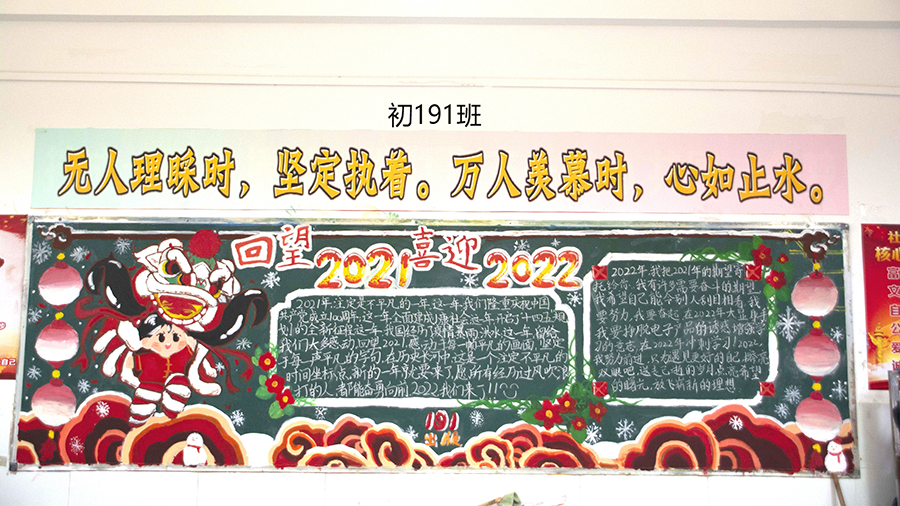 初191班
无人理睬时，坚定执着。万人羡慕时，心如止水。
回望2021喜迎2022
2021年注定是不平凡的一年这一年我们隆重庆祝中国
共产党成立100周年这一年全面建成小康社会这一年开启了十四五规
划的全新征程这一年我国经历了疫情暴雨洪水这一年留给
我们太多感动回望2021感动于每一帧平凡的画面坚定
于每一声平凡的等句在历史长河中这是一个注定不平凡的
时间坐标点新的一年就要来了愿所有经历过风吹
打的人都能奋勇向前2022我们来了!!!
2022年我把2021年的期望寄
我希望自己能令别人刮目相看我
要努力我要奋起在2022年大显身手
我要挣脱电子产品的诱惑增强学
191
出版
社
核心
富
文
自
公
爱
自己